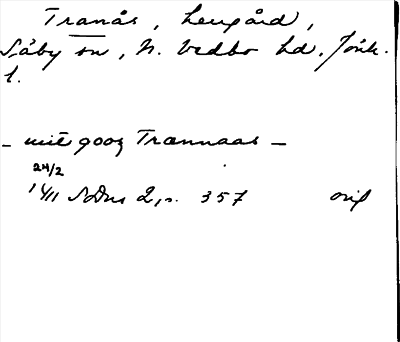 Tranås, herrgård,
Säby sn, N. Vedbo hd, Jönk.
l.
– mit gooz Trænnaas –
24/2
1411 SDns 2, s. 357 orig